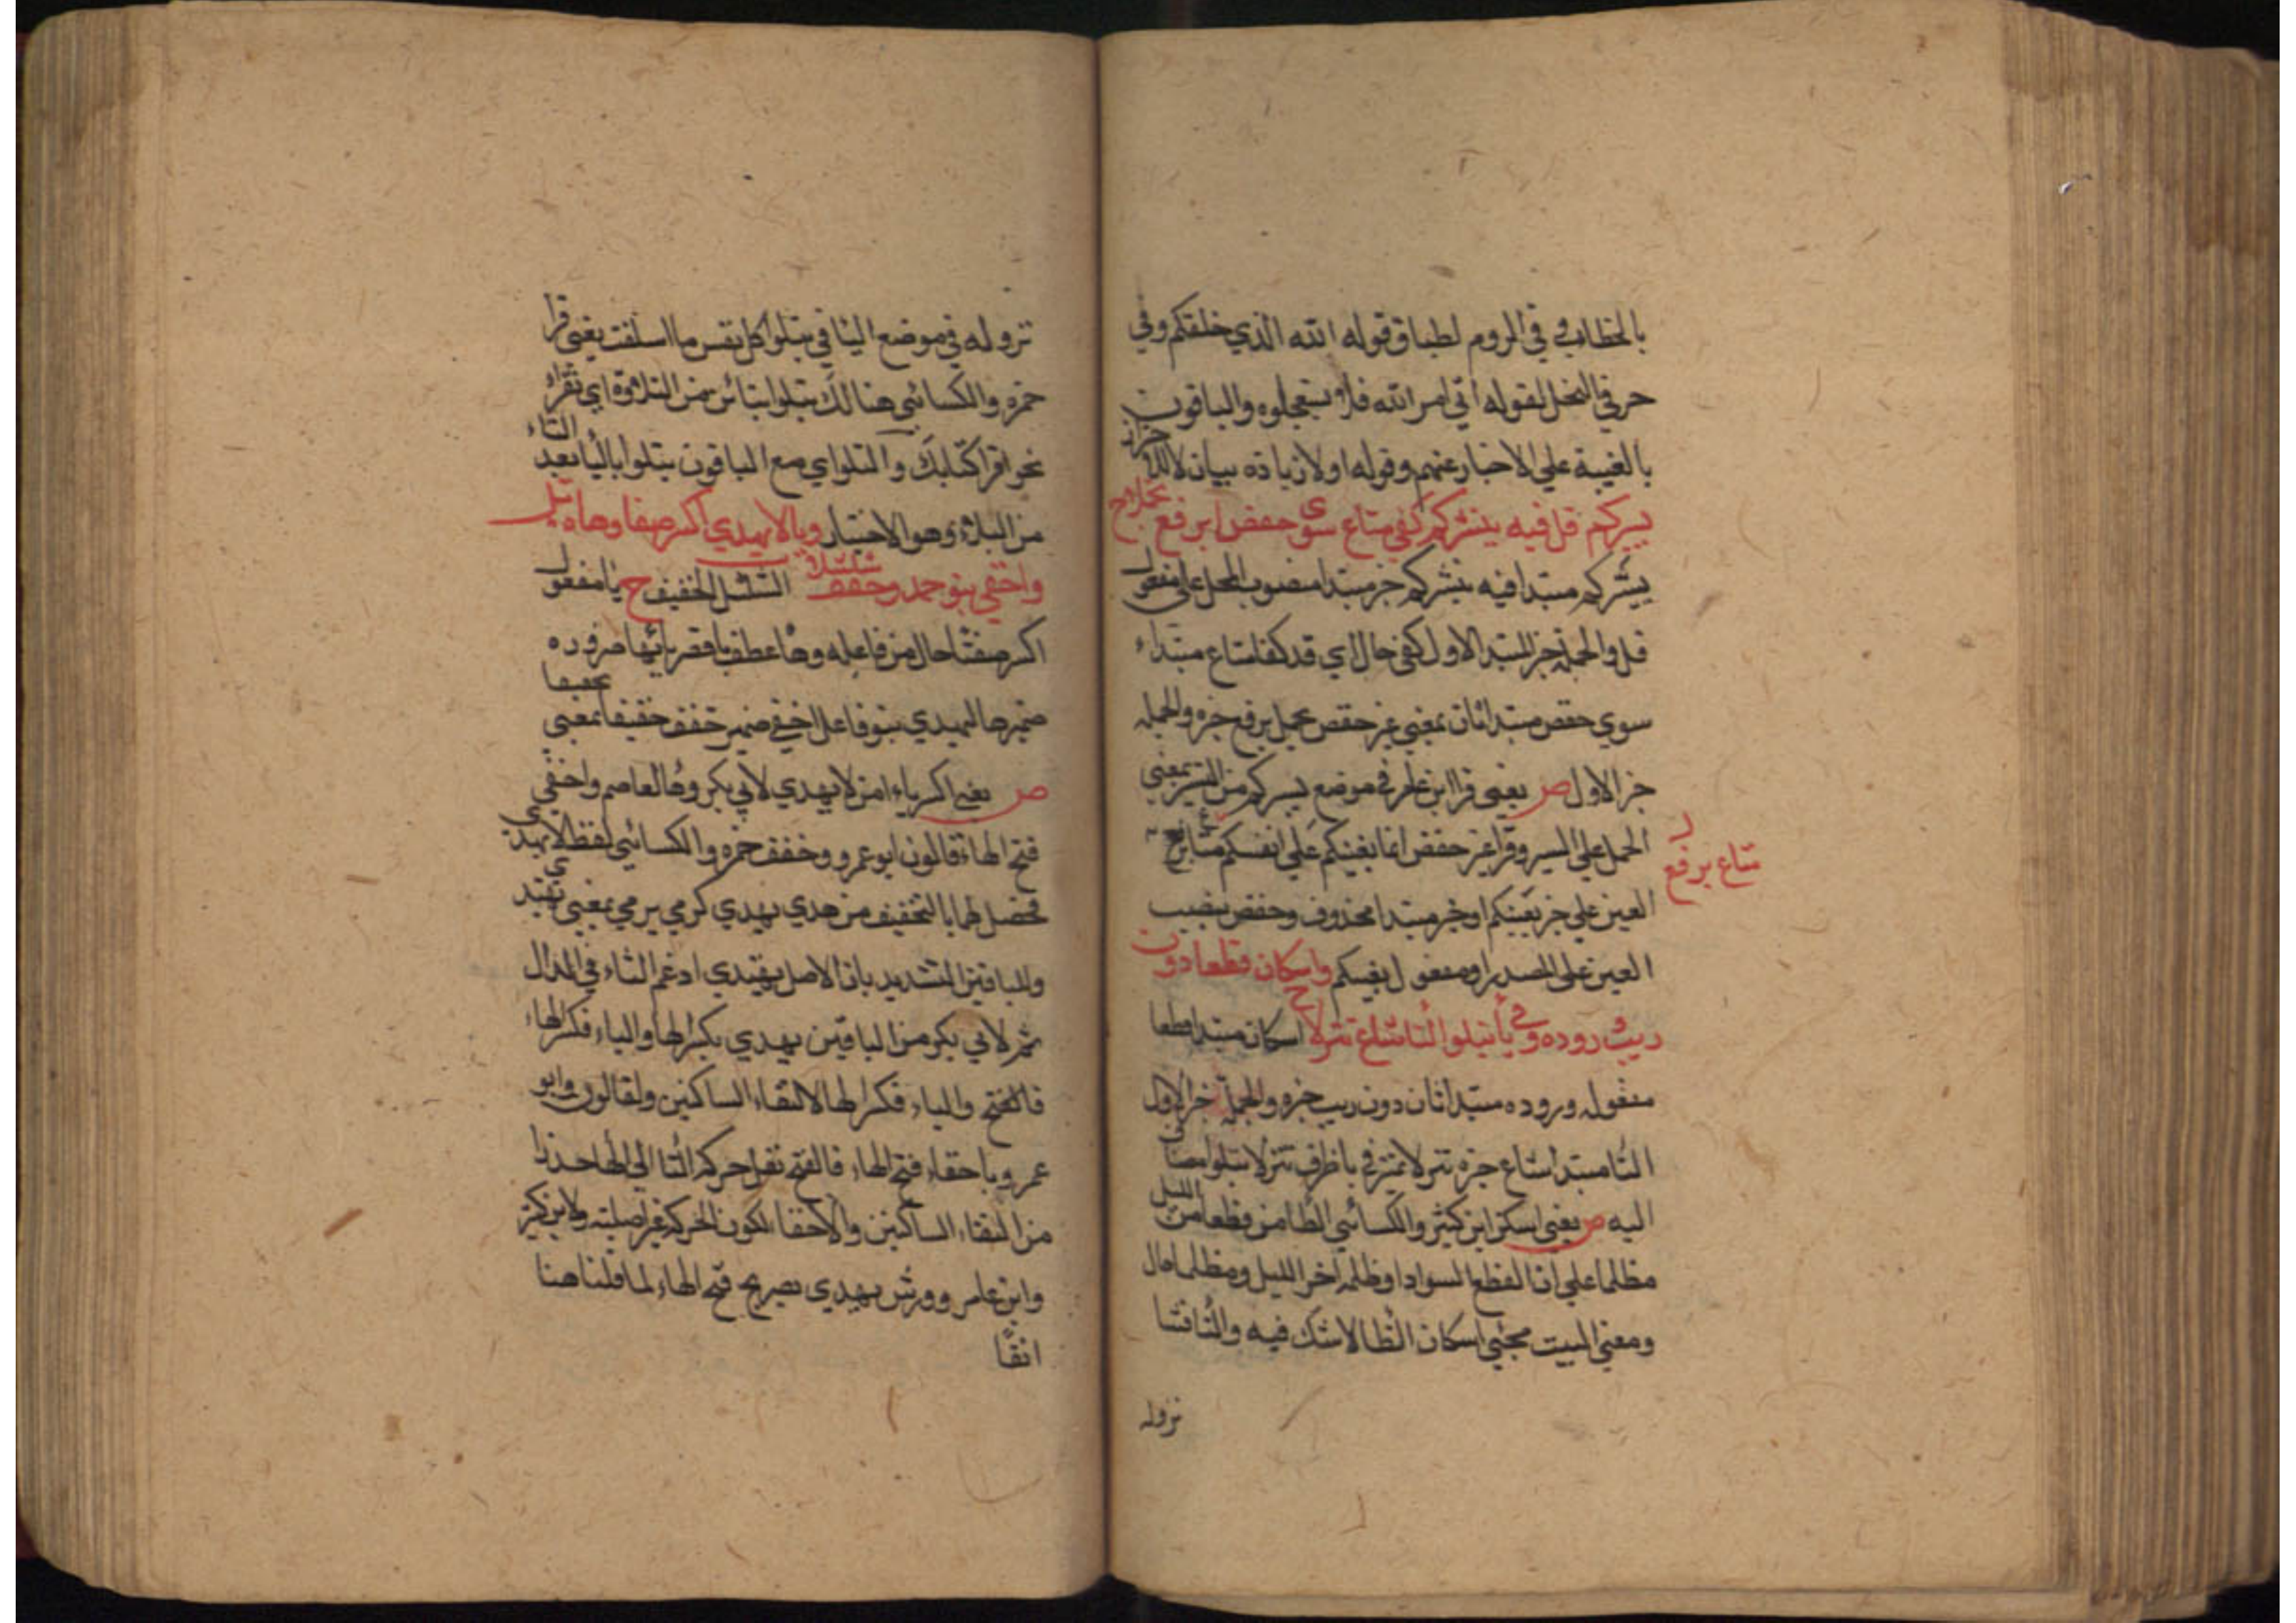 بالخطاب وفي الروم لطباق قوله الله الذي خلقكم وفي
حرفي النحل لقوله اتي امر الله فلا تستعجلوه والباقون
بالغيبة علي الاخبار عنهم وقوله اولا زياده بيان لا
يسركم قل فيه ينشركم كفي متاع سوي حفص برفع تحملا ح
يسركم مبتدا فيه ينشركم خبر مبتدا منصوب المحل علي مفعول
قل والجملة خبر المبتدا الاول كفي حال اي قد كفا متاع مبتداء
سوي حفص مبتدا ثان بمعني غير حفص تحمل برفع خبره والجمله
خبر الاول ص يعني قرا ابن عامر في موضع يسركم من النشر بمعني
الحمل علي السير وقرا غير حفص انما بغيكم علي انفسكم متاع برفع
متاع برفع
العين علي خبر بغيكم او خبر مبتدا محذوف وحفص بنصب
العين علي المصدر او مفعول بغيكم واسكان قطعا دون
ريب وروده وفي باء تبلوا التا شاع تنزلا ح اسكان مبتدا قطعا
مفعوله وروده مبتدا ثان دون ريب خبره والجملة خبر الاول
التا مبتدا شاع خبره تنزلا تميز في با ظرف تنزلا تبلوا مضاف
اليه ص يعني اسكن ابن كثير والكسائي الطا من قطعا من الليل
مظلما علي ان القطع السواد او ظلمة اخر الليل ومظلما حال
ومعني البيت مجئي اسكان الطا لا شك فيه والتا فشا
نزوله
نزوله في موضع البا في تبلوا كل نفس ما اسلفت يعني قرا
حمزه والكسائي هنالك تتلوا بتائين من التلاوة اي تقراء
نحو اقرا كتابك والتلو اي مع الباقون تبلوا بالبا بعد التاء
من البلاء وهو الاختبار ويا لا يهدي اكسر صفيا وهاه نل
واخفي بنو حمد وخفف شلشلا الشلشل الخفيف ح يا مفعول
اكسر صفيا حال من فاعله وها عطف با قصر بائها ضروره
ضميرها ليهدي بنو فاعل اخفي ضمير خفف خفيفا بمعني
ص يعني اكسر ياء امن لا يهدي لابي بكر وها لعاصم واخفي
فتح الهاء قالون ابو عمرو وخفف حمزه والكسائي لفظ لا يهدي
فحصل لهما بالتخفيف من هدي يهدي كرمي يرمي بمعني يهتدي
وللباقين التشديد بان الاصل يهتدي ادغم التاء في الدال
ثم لابي بكر من الباقين يهدي بكسر الها والياء فكسر الهاء
فالفتح والياء فكسر الها لالتقاء الساكنين ولقالون وابو
عمرو باخفاء فتح الهاء فالفتح نقل حركه التا الي الها حذرا
من التقاء الساكنين والاخفا لكون الحركة غير اصلية ولابن كثير
وابن عامر وورش يهدي بصريح فتح الهاء لما قلنا هنا
انفًا